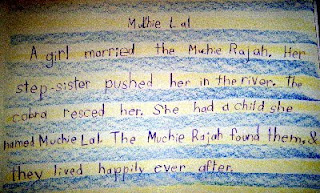 Muchie Lal
A girl married the Muchie Rajah. Her
step-sister pushed her in the river. The
cobra resced her. She had a child she
named Muchie Lal. The Muchie Rajah found them, &
they lived happily ever after.